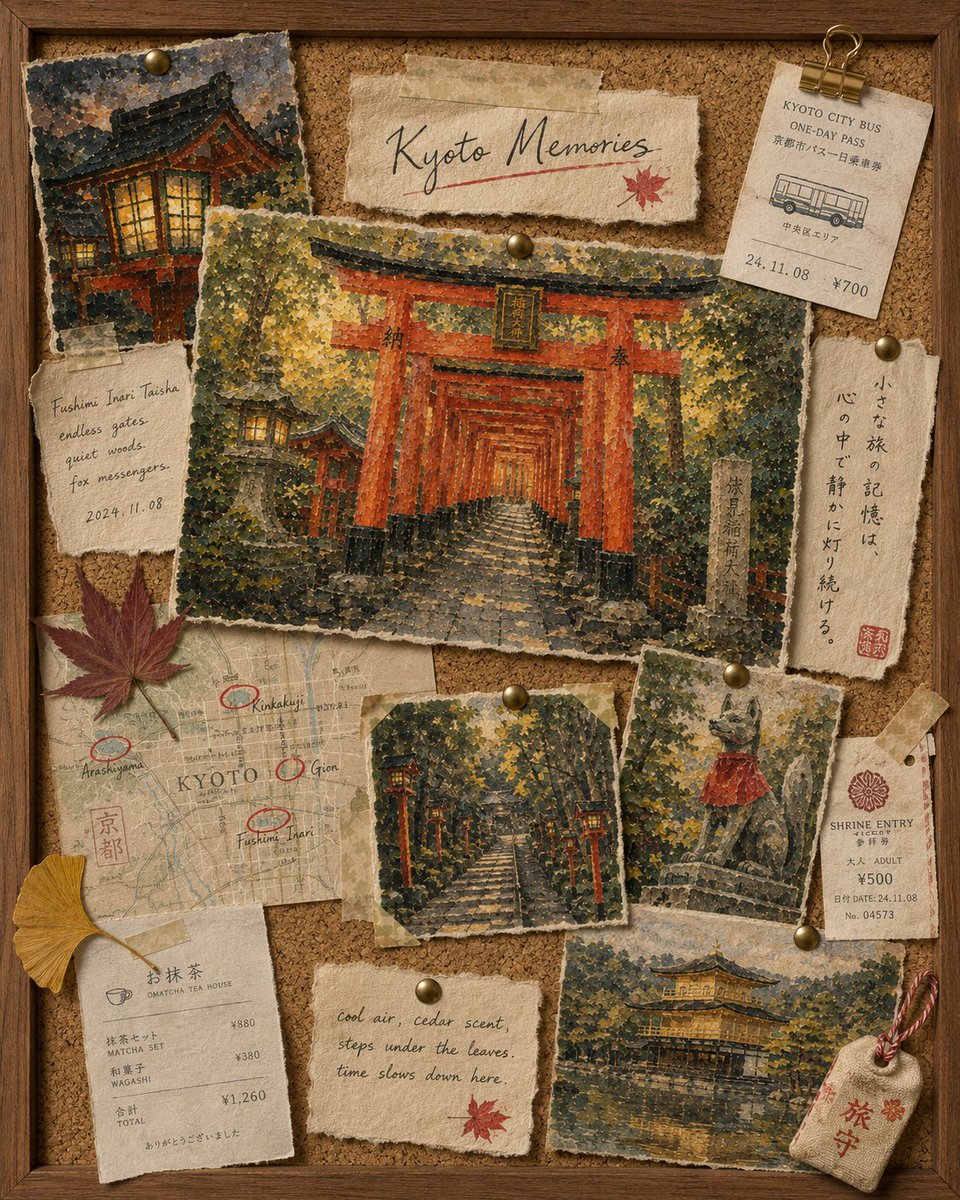 Kyoto Memories
KYOTO CITY BUS
ONE-DAY PASS
京都市バス一日乗車券
中央区エリア
24.11.08
¥700
納
奉
伏見稲荷大社
Fushimi Inari Taisha
endless gates.
quiet woods.
fox messengers.
2024.11.08
小さな旅の記憶は、
心の中で静かに灯り続ける。
Kinkakuji
Arashiyama
KYOTO
Gion
Fushimi Inari
京都
SHRINE ENTRY
参拝券
大人 ADULT
¥500
日付 DATE: 24.11.08
No. 04573
お抹茶
OMATCHA TEA HOUSE
抹茶セット ¥880
MATCHA SET
和菓子 ¥380
WAGASHI
合計 ¥1,260
TOTAL
ありがとうございました
cool air, cedar scent,
steps under the leaves.
time slows down here.
旅守